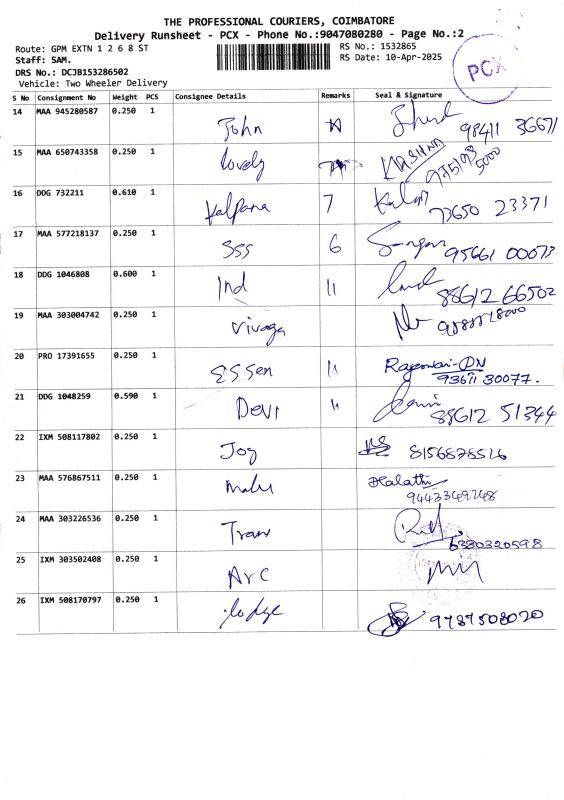 THE PROFESSIONAL COURIERS, COIMBATORE
Delivery Runsheet - PCX - Phone No.:9047080280 - Page No.:2
Route: GPM EXTN 1 2 6 8 ST RS No.: 1532865
Staff: SAM. RS Date: 10-Apr-2025
DRS No.: DCJB153286502
Vehicle: Two Wheeler Delivery
PCX
S No Consignment No Weight PCS Consignee Details Remarks Seal & Signature
14 MAA 945280587 0.250 1 John 98411 36671
15 MAA 650743358 0.250 1 Lovely KRISHNA
16 DDG 732211 0.610 1 Kalpana 7 73650 23371
17 MAA 577218137 0.250 1 SSS 6 95661 00073
18 DDG 1046808 0.600 1 Ind 11 88612 66502
19 MAA 303004742 0.250 1
20 PRO 17391655 0.250 1 Essen 11 93611 30077.
21 DDG 1048259 0.590 1 Devi 11 88612 51344
22 IXM 508117802 0.250 1 Joy 8156878526
23 MAA 576867511 0.250 1 Malathi 9443349248
24 MAA 303226536 0.250 1 6380320598
25 IXM 303502408 0.250 1 Arc
26 IXM 508170797 0.250 1 lodge 9787508020